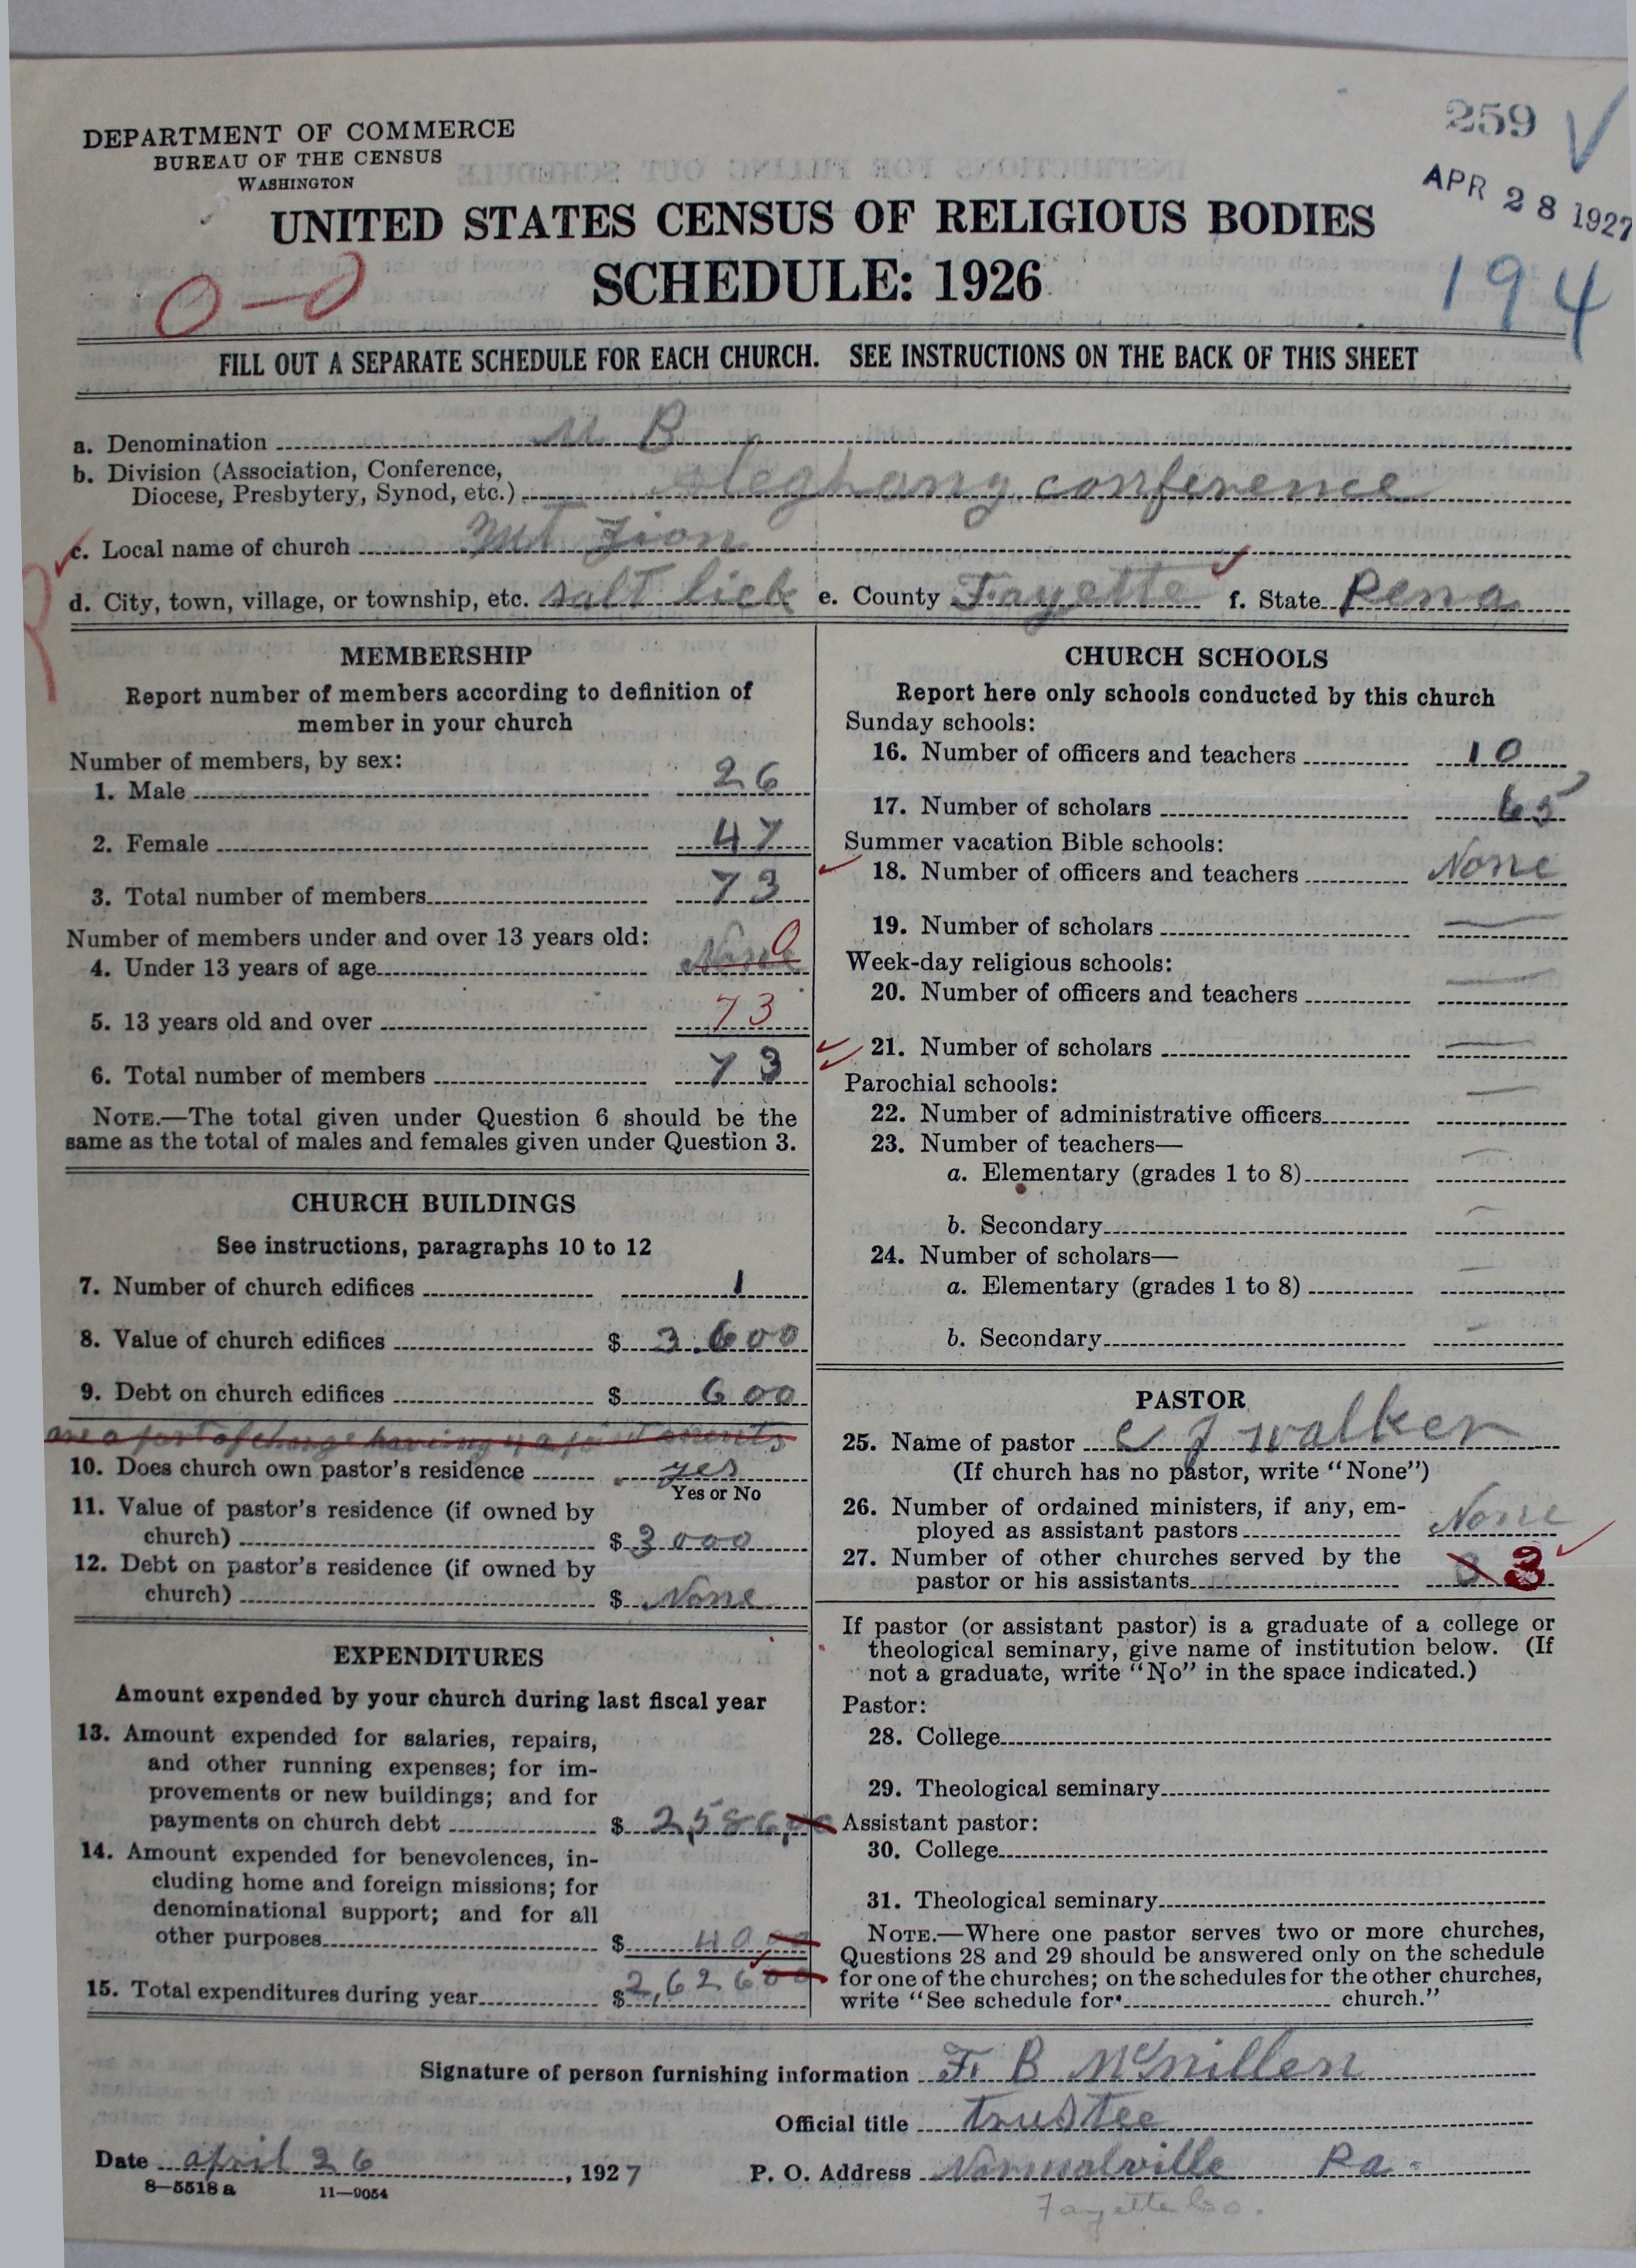 259
APR 28 1927
194
DEPARTMENT OF COMMERCE
BUREAU OF THE CENSUS
WASHINGTON
UNITED STATES CENSUS OF RELIGIOUS BODIES
SCHEDULE: 1926
0-0
FILL OUT A SEPARATE SCHEDULE FOR EACH CHURCH. SEE INSTRUCTIONS ON THE BACK OF THIS SHEET
a. Denomination U B
b. Division (Association, Conference,
Diocese, Presbytery, Synod, etc.) aleghany conference
c. Local name of church Mt Zion
d. City, town, village, or township, etc. salt lick e. County Fayette f. State Pena
MEMBERSHIP
Report number of members according to definition of
member in your church
Number of members, by sex:
1. Male 26
2. Female 47
3. Total number of members 73
Number of members under and over 13 years old:
4. Under 13 years of age None 0
5. 13 years old and over 73
6. Total number of members 73
NOTE.—The total given under Question 6 should be the
same as the total of males and females given under Question 3.
CHURCH BUILDINGS
See instructions, paragraphs 10 to 12
7. Number of church edifices 1
8. Value of church edifices $ 3.600
9. Debt on church edifices $ 600
are a part of charge having a joint
10. Does church own pastor's residence yes
Yes or No
11. Value of pastor's residence (if owned by
church) $ 3000
12. Debt on pastor's residence (if owned by
church) $ None
EXPENDITURES
Amount expended by your church during last fiscal year
13. Amount expended for salaries, repairs,
and other running expenses; for im-
provements or new buildings; and for
payments on church debt $ 2,586,00
14. Amount expended for benevolences, in-
cluding home and foreign missions; for
denominational support; and for all
other purposes $ 40 00
15. Total expenditures during year $ 2,626 00
CHURCH SCHOOLS
Report here only schools conducted by this church
Sunday schools:
16. Number of officers and teachers 10
17. Number of scholars 65
Summer vacation Bible schools:
18. Number of officers and teachers None
19. Number of scholars —
Week-day religious schools:
20. Number of officers and teachers —
21. Number of scholars —
Parochial schools:
22. Number of administrative officers —
23. Number of teachers—
a. Elementary (grades 1 to 8) —
b. Secondary —
24. Number of scholars—
a. Elementary (grades 1 to 8) —
b. Secondary —
PASTOR
25. Name of pastor C J walker
(If church has no pastor, write "None")
26. Number of ordained ministers, if any, em-
ployed as assistant pastors None
27. Number of other churches served by the
pastor or his assistants 3
If pastor (or assistant pastor) is a graduate of a college or
theological seminary, give name of institution below. (If
not a graduate, write "No" in the space indicated.)
Pastor:
28. College
29. Theological seminary
Assistant pastor:
30. College
31. Theological seminary
NOTE.—Where one pastor serves two or more churches,
Questions 28 and 29 should be answered only on the schedule
for one of the churches; on the schedules for the other churches,
write "See schedule for church."
Signature of person furnishing information F. B McMillen
Official title trustee
Date april 26, 1927 P. O. Address Normalville Pa.
8—5518 a 11—9054
Fayette Co.